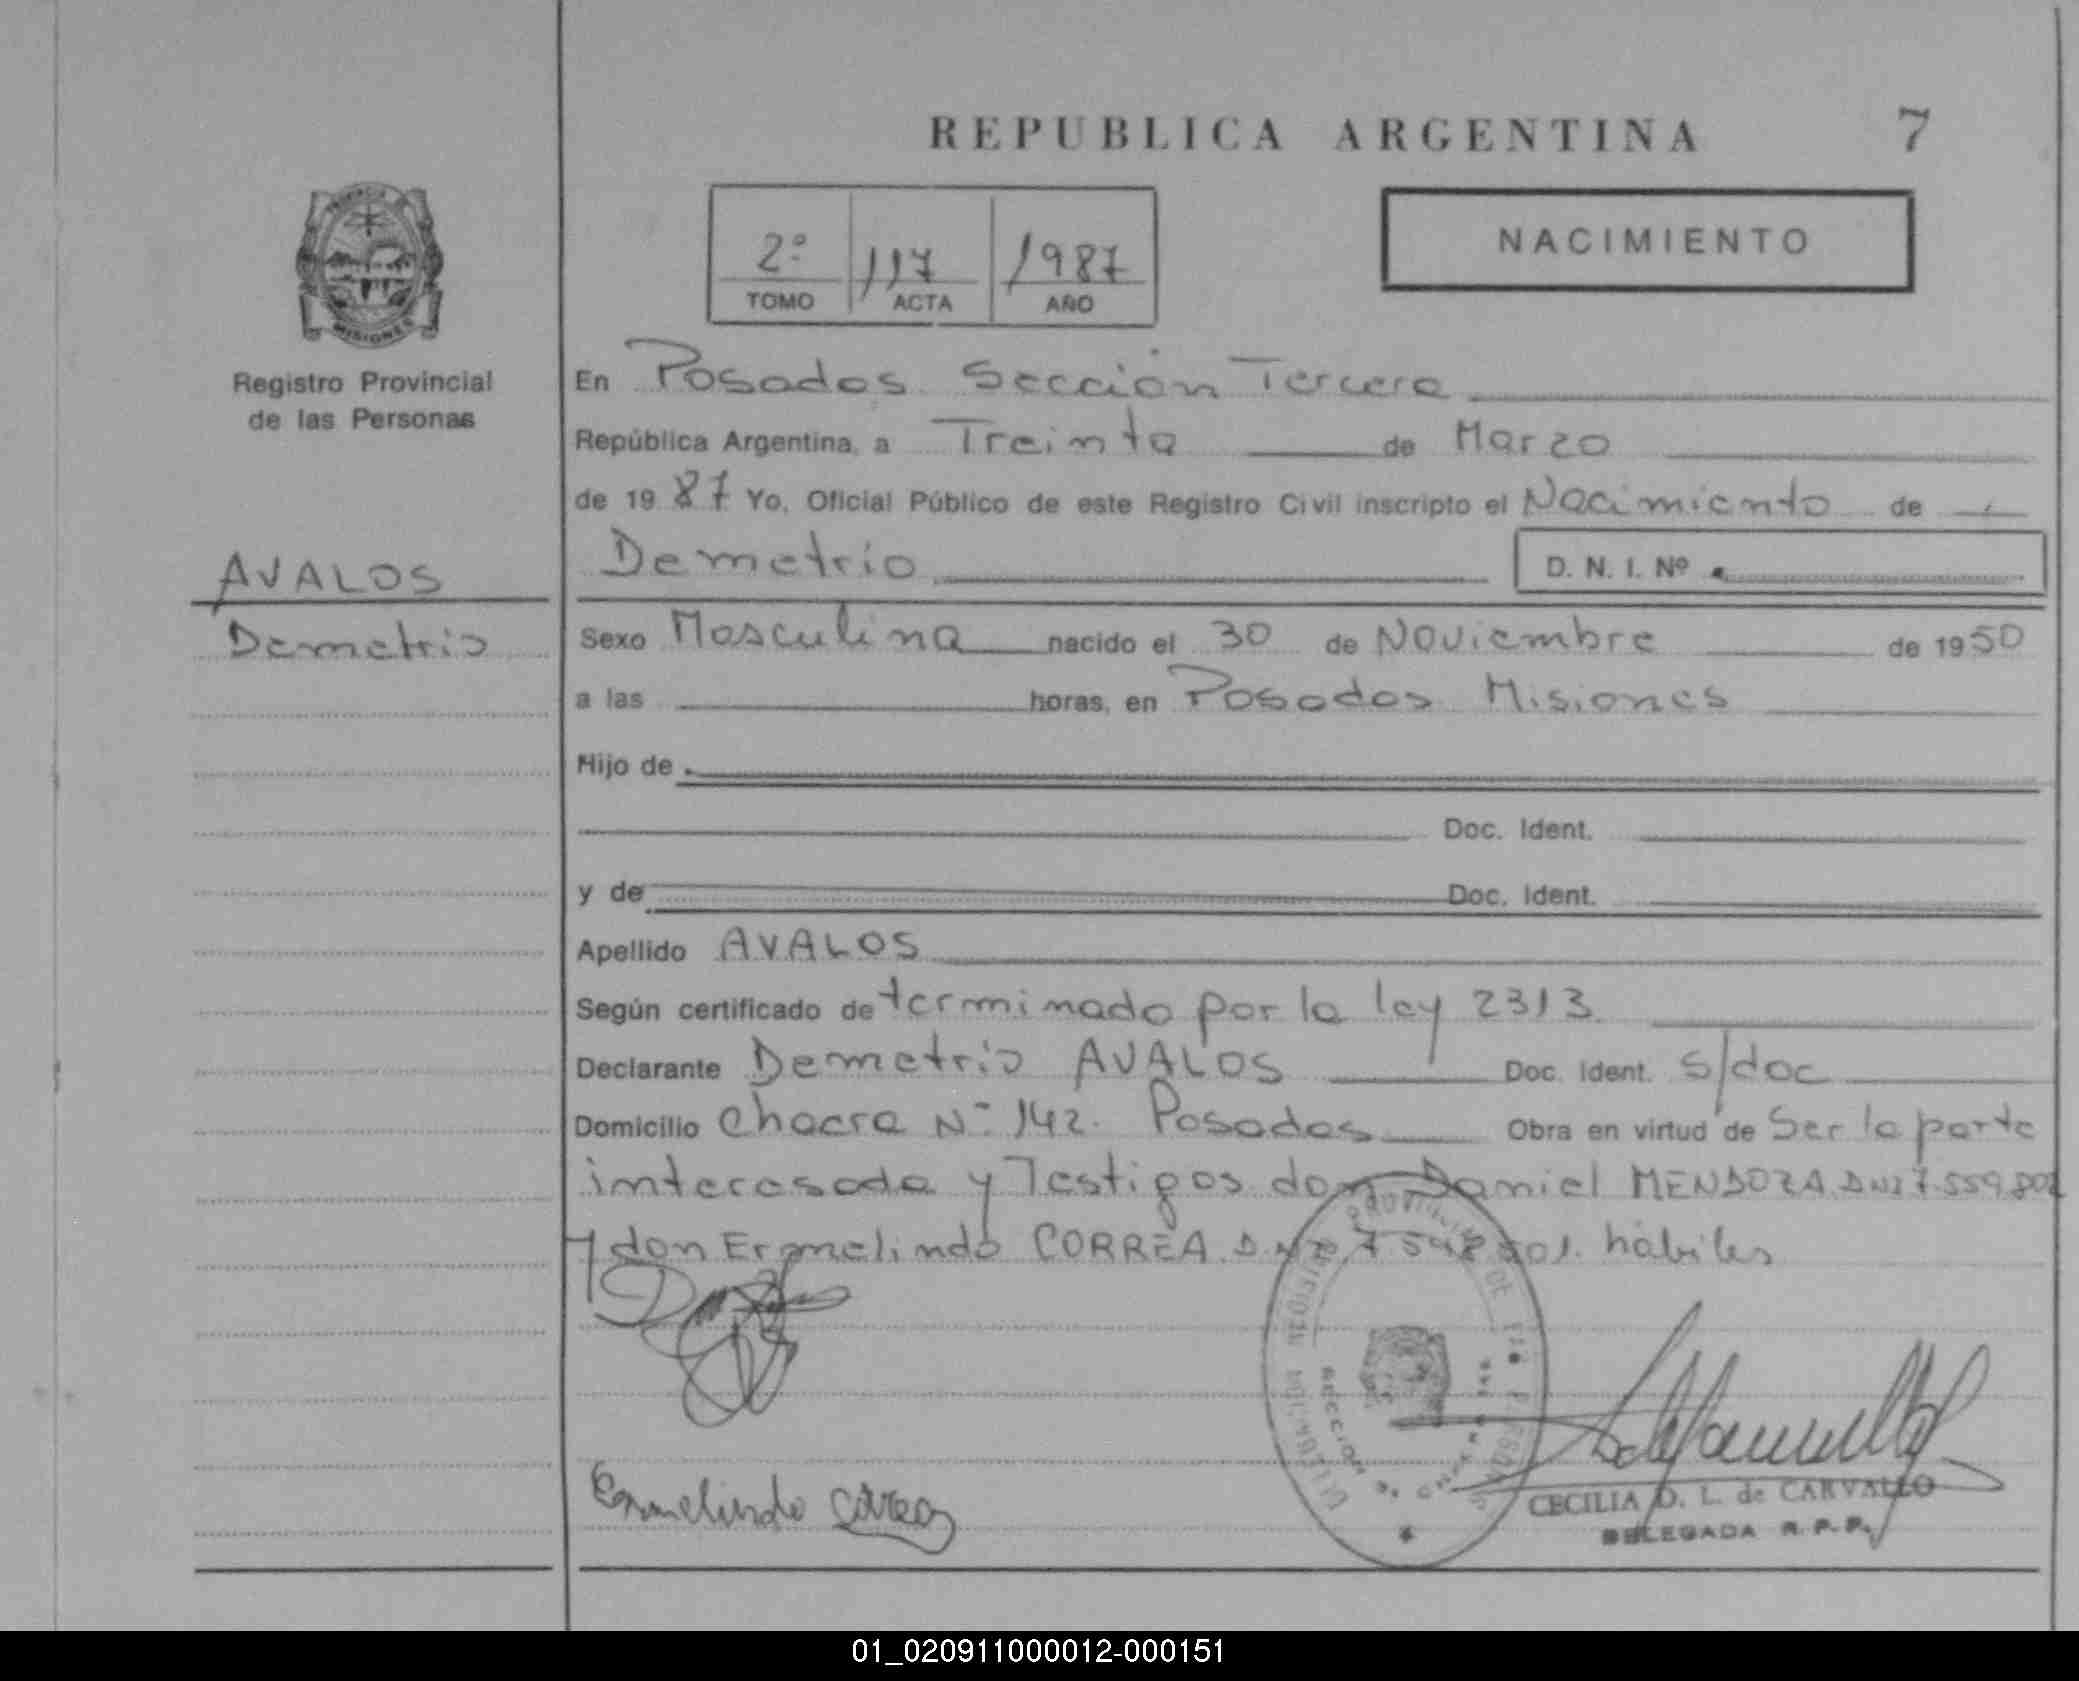 REPUBLICA ARGENTINA 7
2º 117 1987
TOMO ACTA AÑO
NACIMIENTO
MISIONES
Registro Provincial
de las Personas
AVALOS
Demetrio
En Posadas Sección Tercera
República Argentina, a Treinta de Marzo
de 1987 Yo, Oficial Público de este Registro Civil inscripto el Nacimiento de
Demetrio D. N. I. Nº
Sexo Masculina nacido el 30 de Noviembre de 1950
a las horas, en Posadas Misiones
Hijo de
Doc. Ident.
y de Doc. Ident.
Apellido AVALOS
Según certificado determinado por la ley 2313
Declarante Demetrio AVALOS Doc. Ident. s/doc
Domicilio Chacra Nº 142. Posadas Obra en virtud de Ser la parte
interesada y Testigos don Daniel MENDOZA DNI 7.559.802
y don Ermelindo CORREA D.N.I. hábiles
Ermelindo Correa
CECILIA D. L. de CARVALLO
DELEGADA R. P. P.
01_020911000012-000151